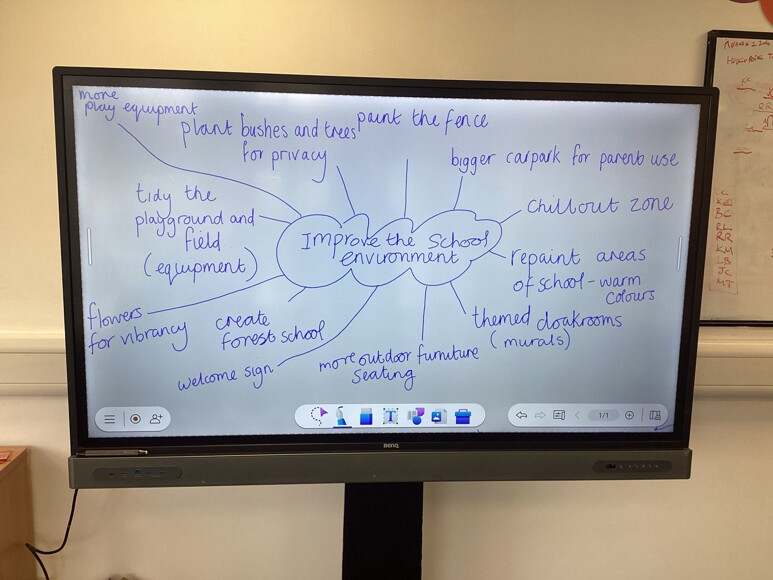 more
play equipment
plant bushes and trees
for privacy
paint the fence
bigger carpark for parent use
tidy the
playground and
field
(equipment)
Improve the School
environment
chillout zone
repaint areas
of school - warm
colours
flowers
for vibrancy
create
forest school
welcome sign
more outdoor furniture
seating
themed cloakrooms
(murals)
1/1
BenQ